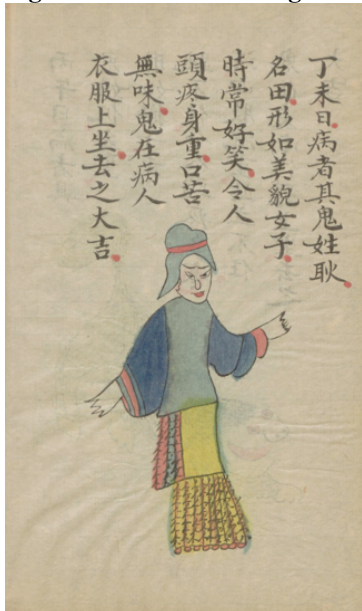 丁未日病者其鬼姓耿
名田形如美貌女子
時常好笑令人
頭疼身重口苦
無味鬼在病人
衣服上坐去之大吉